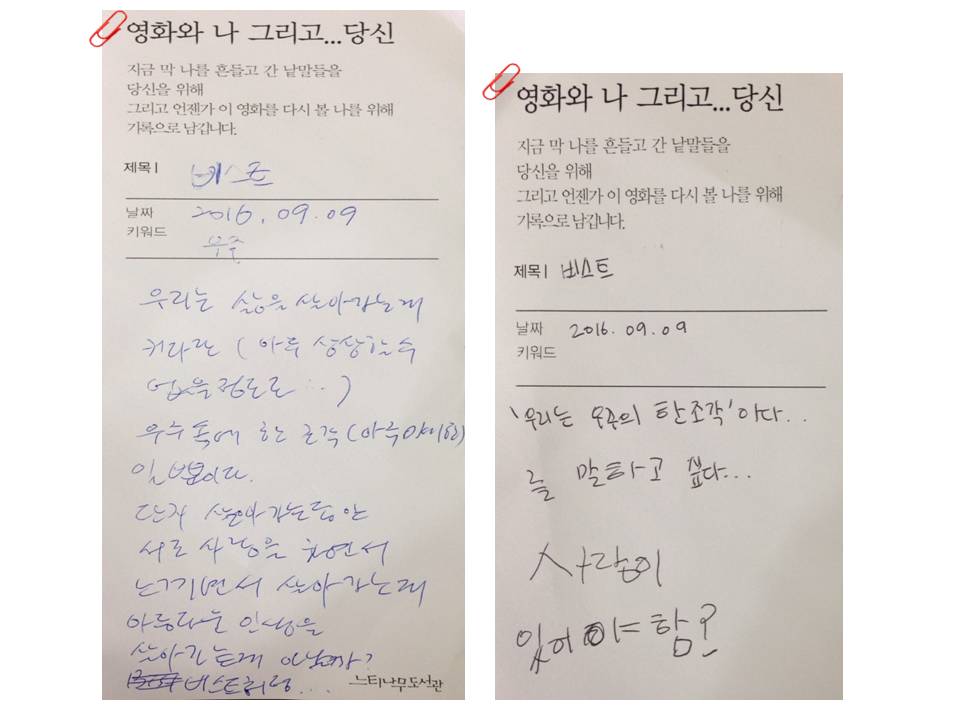 영화와 나 그리고...당신
지금 막 나를 흔들고 간 낱말들을
당신을 위해
그리고 언젠가 이 영화를 다시 볼 나를 위해
기록으로 남깁니다.
제목 | 비스트
날짜 2016.09.09
키워드 우주
우리는 삶을 살아가는데
커다란 (아주 상상할수
없을정도로...)
우주속에 한 조각(아주많이요)
일뿐이다.
단지 살아가는동안
서로 사랑을
느끼면서 살아가는데
아름다운 인생을
살아가는데 아닐까?
비스트처럼...
느티나무도서관
영화와 나 그리고...당신
지금 막 나를 흔들고 간 낱말들을
당신을 위해
그리고 언젠가 이 영화를 다시 볼 나를 위해
기록으로 남깁니다.
제목 | 비스트
날짜 2016.09.09
키워드
'우리는 우주의 한조각'이다..
를 말하고 싶다...
사람이
있어야 함?